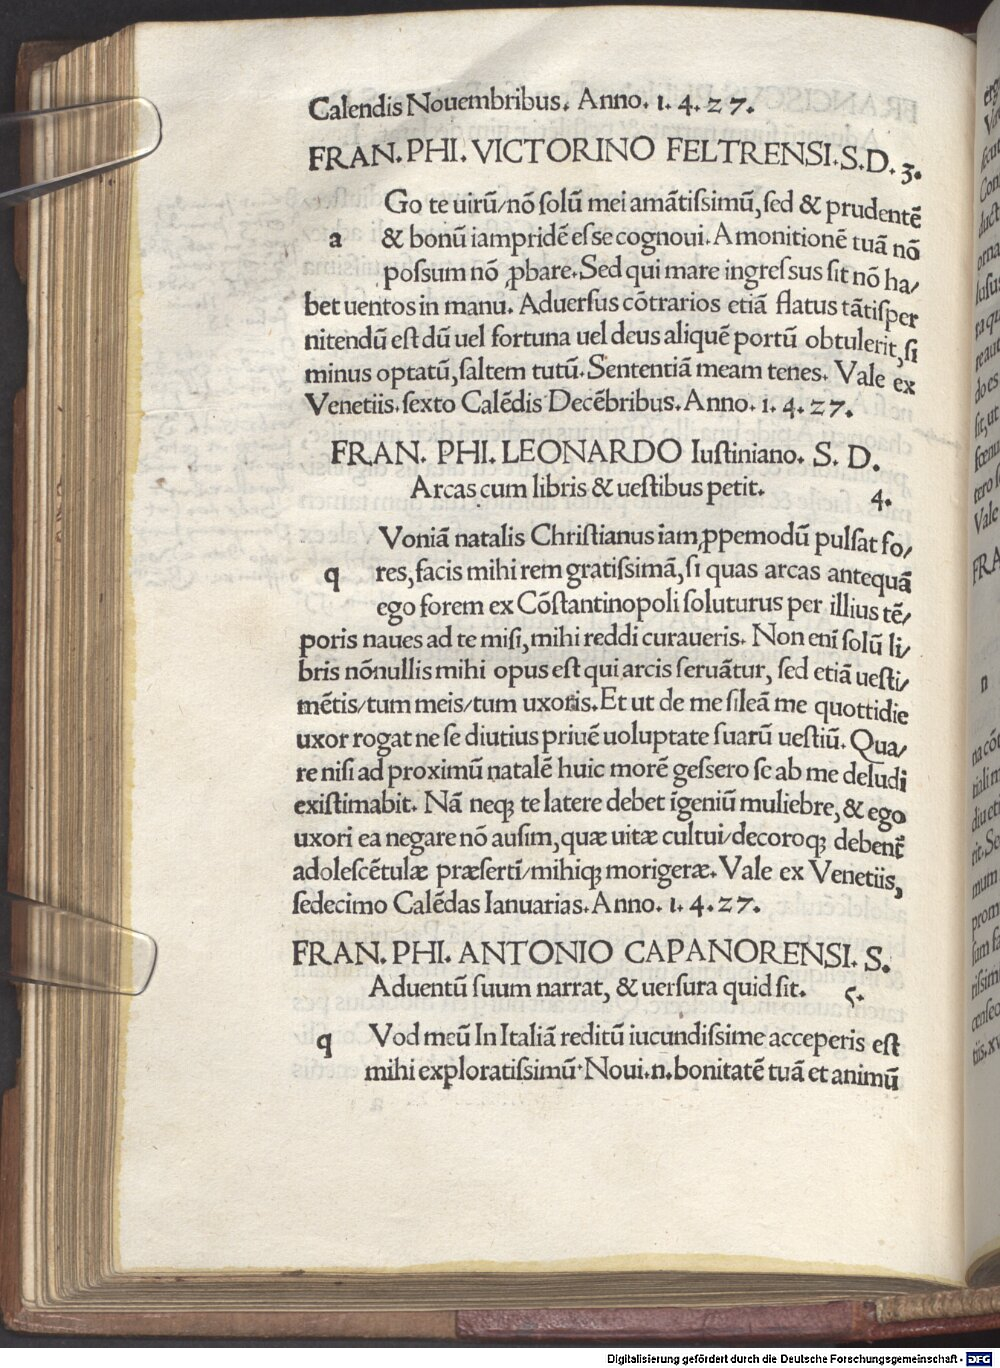 Calendis Nouembribus. Anno. 1. 4. 27.
FRAN. PHI. VICTORINO FELTRENSI. S. D. 3.
Go te uirū/nō ſolū mei amātiſſimū, ſed & prudentē
a & bonū iampridē eſſe cognoui. Amonitionē tuā nō
poſſum nō ꝓbare. Sed qui mare ingreſſus ſit nō ha/
bet uentos in manu. Aduerſus cōtrarios etiā flatus tātiſper
nitendū eſt dū uel fortuna uel deus aliquē portū obtulerit, ſi
minus optatū, ſaltem tutū. Sententiā meam tenes. Vale ex
Venetiis. ſexto Calēdis Decēbribus. Anno. 1. 4. 27.
FRAN. PHI. LEONARDO Iuſtiniano. S. D.
Arcas cum libris & ueſtibus petit. 4.
Voniā natalis Chriſtianus iam, ꝓpemodū pulſat fo/
q res, facis mihi rem gratiſſimā, ſi quas arcas antequā
ego forem ex Cōſtantinopoli ſoluturus per illius tē/
poris naues ad te miſi, mihi reddi curaueris. Non eni̅ ſolū li/
bris nōnullis mihi opus eſt qui arcis ſeruātur, ſed etiā ueſti/
mētis/tum meis/tum uxoris. Et ut de me ſileā me quottidie
uxor rogat ne ſe diutius priuē uoluptate ſuarū ueſtiū. Qua/
re niſi ad proximū natalē huic morē geſſero ſe ab me deludi
exiſtimabit. Nā neqꝫ te latere debet i̅geniū muliebre, & ego
uxori ea negare nō auſim, quæ uitæ cultui/decoroqꝫ debent̅
adoleſcētulæ præſerti̅/mihiqꝫ morigeræ. Vale ex Venetiis,
ſedecimo Calēdas Ianuarias. Anno. 1. 4. 27.
FRAN. PHI. ANTONIO CAPANORENSI. S.
Aduentū ſuum narrat, & uerſura quid ſit. 5.
q Vod meū In Italiā reditū iucundiſſime acceperis eſt
mihi exploratiſſimū. Noui. n. bonitatē tuā et animū
Digitalisierung gefördert durch die Deutsche Forschungsgemeinschaft - DFG